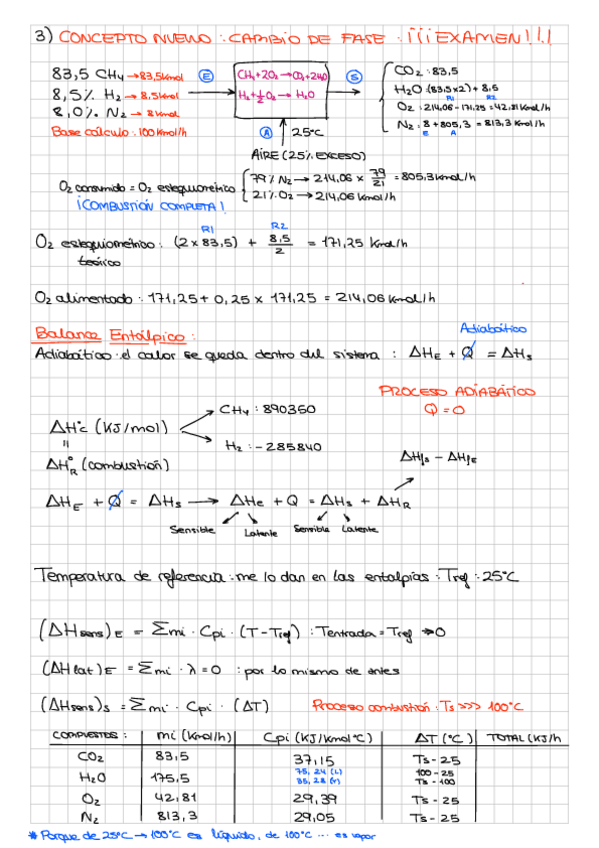 3) CONCEPTO NUEVO : CAMBIO DE FASE : ¡¡¡ EXAMEN!!!
83,5 CH4 → 83,5kmol
8,5% H2 → 8,5kmol
8,0% N2 → 8kmol
Base calculo : 100 Kmol/h
E
CH4+2O2 → CO2+2H2O
H2+½O2 → H2O
S
CO2 : 83,5
H2O : (83,5x2) + 8,5
R1 R2
O2 : 214,06 - 171,25 = 42,81 Kmol/h
N2 : 8 + 805,3 = 813,3 Kmol/h
E A
A 25°C
AIRE (25% EXCESO)
O2 consumido = O2 estequiométrico
¡COMBUSTIÓN COMPLETA!
79% N2 → 214,06 x 79/21 = 805,3 Kmol/h
21% O2 → 214,06 Kmol/h
R1 R2
O2 estequiométrico : (2 x 83,5) + 8,5/2 = 171,25 Kmol/h
teórico
O2 alimentado : 171,25 + 0,25 x 171,25 = 214,06 Kmol/h
Balance Entálpico :
Adiabático
Adiabático : el calor se queda dentro del sistema : ΔHE + Q = ΔHs
PROCESO ADIABÁTICO
Q = 0
ΔH°c (KJ/mol)
CH4 : 890360
H2 : -285840
=
ΔH°R (combustión)
ΔHfs - ΔHfE
ΔHE + Q = ΔHs → ΔHe + Q = ΔHs + ΔHR
Sensible Latente Sensible Latente
Temperatura de referencia : me lo dan en las entalpías : Tref : 25°C
(ΔHsens)E = Σmi · Cpi · (T - Tref) : Tentrada = Tref → 0
(ΔHlat)E = Σmi · λ = 0 : por lo mismo de antes
(ΔHsens)s = Σmi · Cpi · (ΔT) Proceso combustión : Ts >>> 100°C
COMPUESTOS : mi (Kmol/h) Cpi (KJ/Kmol°C) ΔT (°C) TOTAL (KJ/h
CO2 83,5 37,15 Ts - 25
H2O 175,5 75,24 (L) 100 - 25
35,28 (V) Ts - 100
O2 42,81 29,39 Ts - 25
N2 813,3 29,05 Ts - 25
* Porque de 25°C → 100°C es líquido, de 100°C ... es vapor